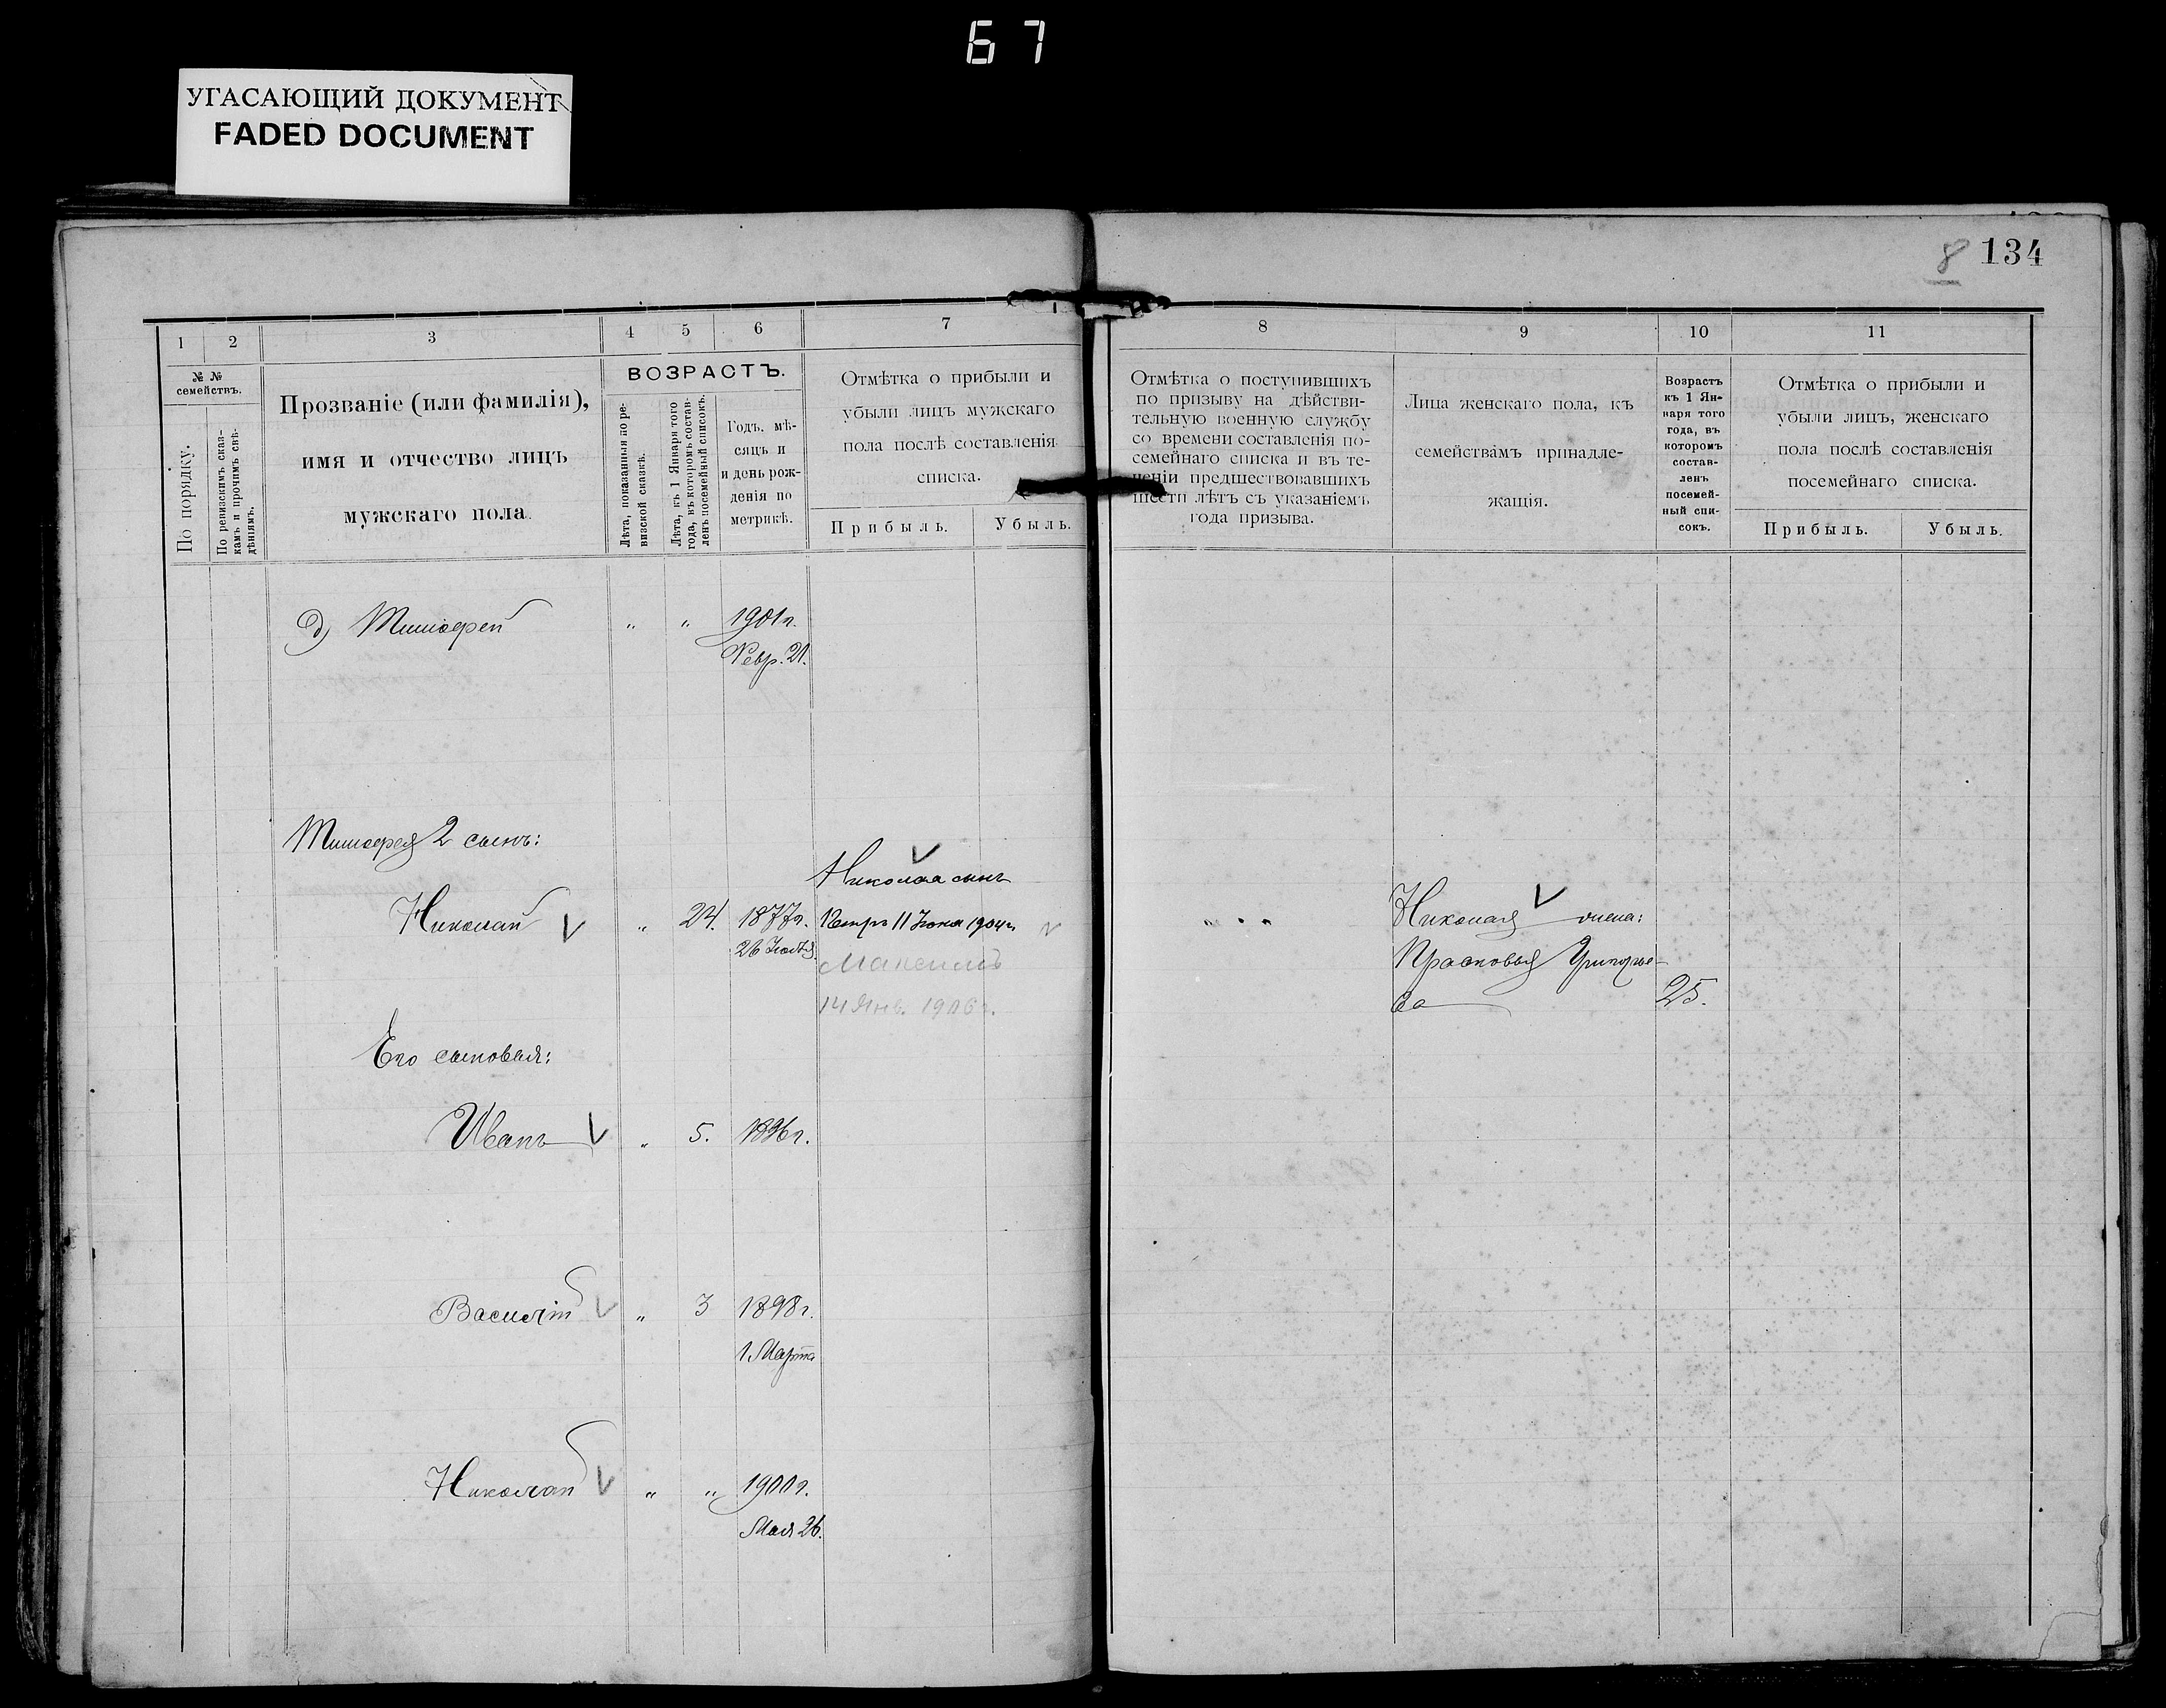 67
УГАСАЮЩИЙ ДОКУМЕНТ
FADED DOCUMENT
8 134
1 2 3 4 5 6 7
№ №
семействъ.
По порядку.
По ревизскимъ сказ-
камъ и прочимъ свѣ-
дѣніямъ.
Прозваніе (или фамилія),
имя и отчество лицъ
мужскаго пола
ВОЗРАСТЪ.
Лѣта, показанныя по ре-
визской сказкѣ.
Лѣта, къ 1 Января того
года, въ которомъ состав-
ленъ посемейный списокъ.
Годъ, мѣ-
сяцъ и
и день рож-
денія по
метрикѣ.
Отмѣтка о прибыли и
убыли лицъ мужскаго
пола послѣ составленія
списка.
Прибыль. Убыль.
д) Тимофей " " 1901 г.
Февр. 21.
Тимофея 2 сынъ:
Николая сынъ
Николай " 24. 1877 г. Петръ 11 Іюня 1904 г.
26 Іюля
Максимъ
14 Янв. 1906 г.
Его сыновья:
Иванъ " 5. 1896 г.
Василій " 3 1898 г.
1 Марта
Николай " " 1900 г.
Мая 26.
8 9 10 11
Отмѣтка о поступившихъ
по призыву на дѣйстви-
тельную военную службу
со времени составленія по-
семейнаго списка и въ те-
ченіи предшествовавшихъ
шести лѣтъ съ указаніемъ
года призыва.
Лица женскаго пола, къ
семействамъ принадле-
жащія.
Возрастъ
къ 1 Ян-
варя того
года, въ
которомъ
состав-
ленъ
посемей-
ный спи-
сокъ.
Отмѣтка о прибыли и
убыли лицъ, женскаго
пола послѣ составленія
посемейнаго списка.
Прибыль. Убыль.
" " " Николая жена:
Прасковья Григорье-
ва 25.